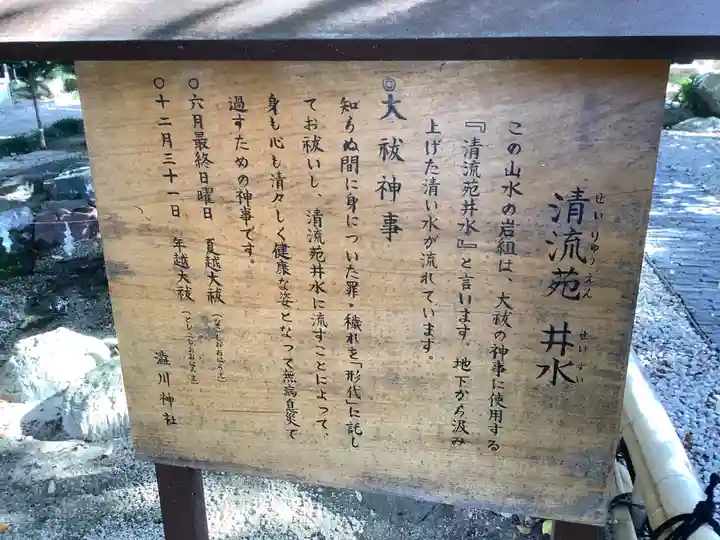 せいりゅうえん せいすい
清流苑 井水
この山水の岩組は、大祓の神事に使用する
『清流苑井水』と言います。地下から汲み
上げた清い水が流れています。
◎大祓神事
知らぬ間に身についた罪・穢れを「形代」に託し
てお祓いし、清流苑井水に流すことによって、
身も心も清々しく健康な姿となって無病息災で
過すための神事です。
○六月最終日曜日 夏越大祓(なごしおおはらえ)
○十二月三十一日 年越大祓(としこしおおはらえ)
澁川神社